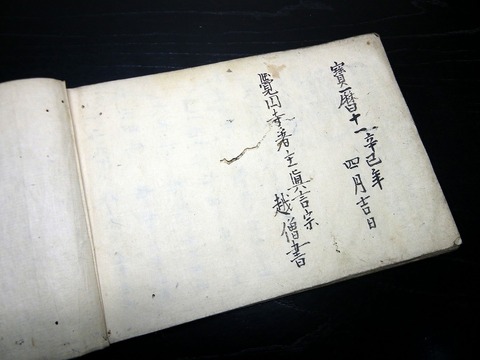 寳暦十一辛巳年
四月吉日
覺因寺著主真言宗
越僧書